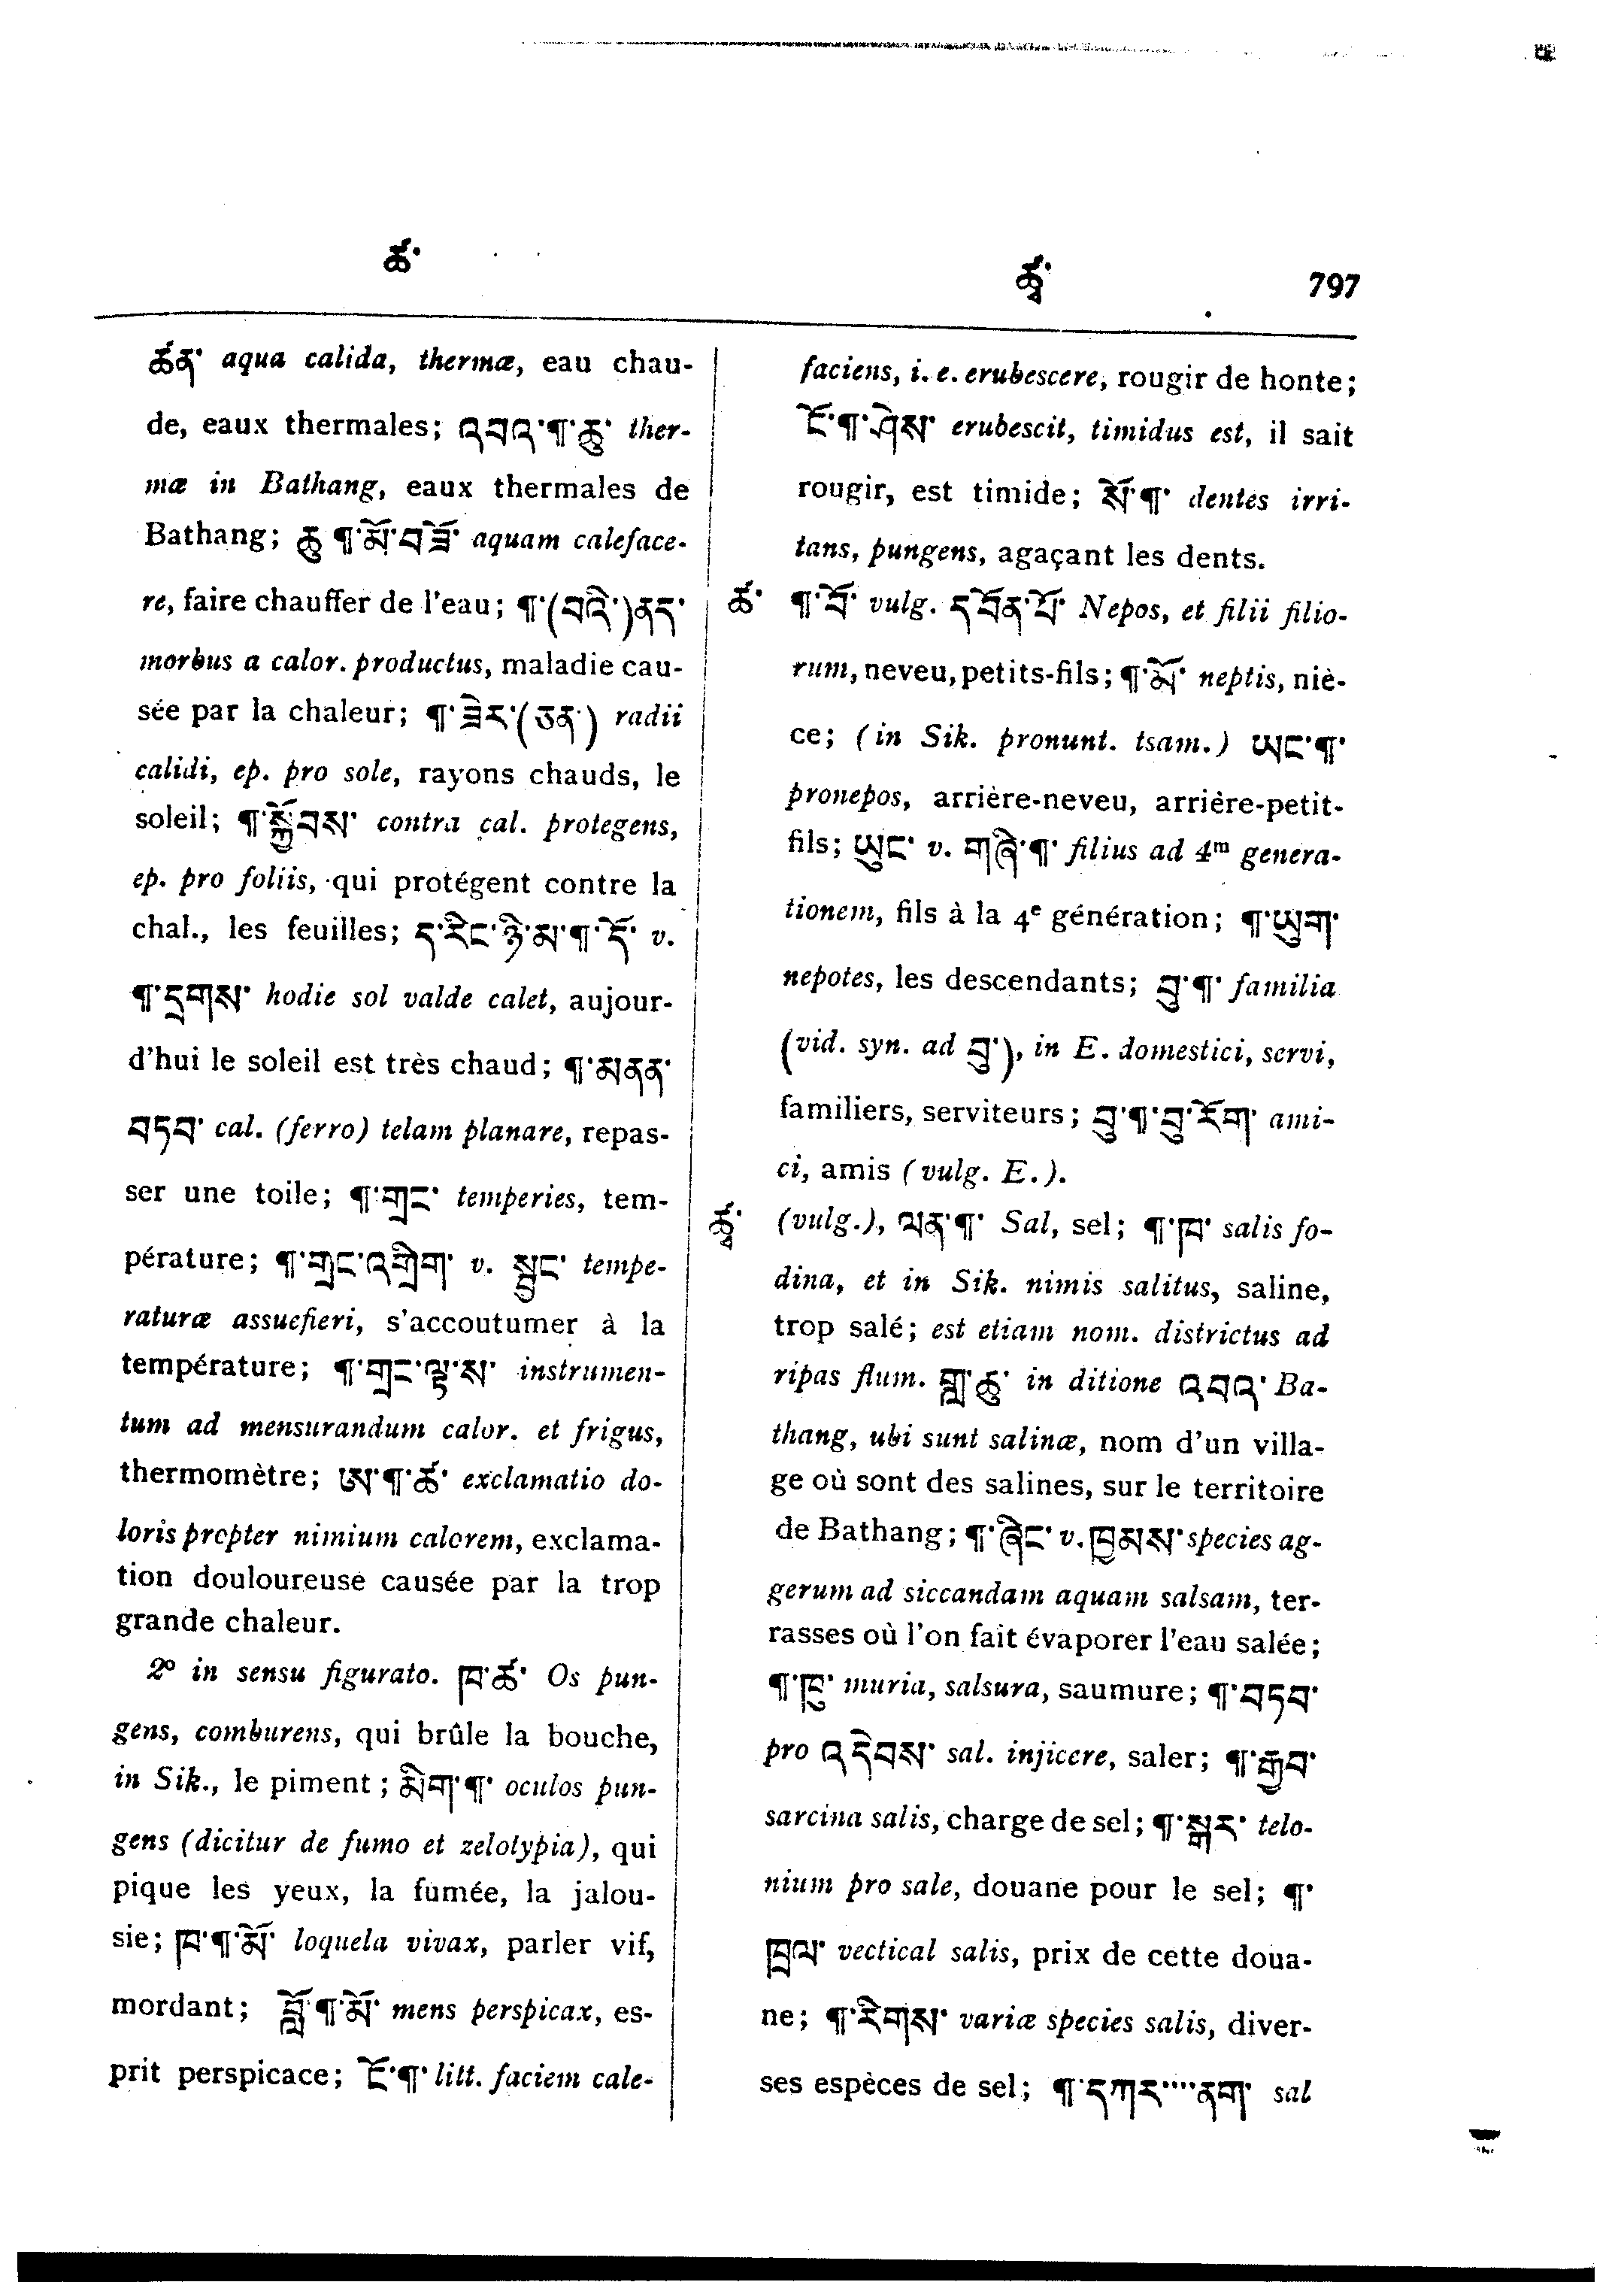 ཚ་
ཚྭ་ 797
ཚན་ aqua calida, thermæ, eau chau-
de, eaux thermales; འབའ་¶་ཆུ་ ther-
mæ in Bathang, eaux thermales de
Bathang; ཆུ་¶་མོ་བཟོ་ aquam caleface-
re, faire chauffer de l'eau; ¶་(བའི་)ནད་
morbus a calor. productus, maladie cau-
sée par la chaleur; ¶་ཟེར་(ཅན་) radii
calidi, ep. pro sole, rayons chauds, le
soleil; ¶་སྐྱོབས་ contra cal. protegens,
ep. pro foliis, qui protégent contre la
chal., les feuilles; ད་རིང་ཉི་མ་¶་དོ་ v.
¶་དྲགས་ hodie sol valde calet, aujour-
d'hui le soleil est très chaud; ¶་མནན་
བཏབ་ cal. (ferro) telam planare, repas-
ser une toile; ¶་གྲང་ temperies, tem-
pérature; ¶་གྲང་འགྲིག་ v. སྦྱང་ tempe-
raturæ assuefieri, s'accoutumer à la
température; ¶་གྲང་ལྟ་ས་ instrumen-
tum ad mensurandum calor. et frigus,
thermomètre; ཨ་¶་ཚ་ exclamatio do-
loris propter nimium calorem, exclama-
tion douloureuse causée par la trop
grande chaleur.
2º in sensu figurato. ཁ་ཚ་ Os pun-
gens, comburens, qui brûle la bouche,
in Sik., le piment; མིག་¶་ oculos pun-
gens (dicitur de fumo et zelotypia), qui
pique les yeux, la fumée, la jalou-
sie; ཁ་¶་མོ་ loquela vivax, parler vif,
mordant; བློ་¶་མོ་ mens perspicax, es-
prit perspicace; ངོ་¶་ litt. faciem cale-
faciens, i. e. erubescere, rougir de honte;
ངོ་¶་ཤེས་ erubescit, timidus est, il sait
rougir, est timide; སོ་¶་ dentes irri-
tans, pungens, agaçant les dents.
ཚ་ ¶་བོ་ vulg. དབོན་པོ་ Nepos, et filii filio-
rum, neveu, petits-fils; ¶་མོ་ neptis, niè-
ce; (in Sik. pronunt. tsam.) ཡང་¶་
pronepos, arrière-neveu, arrière-petit-
fils; ཡུང་ v. གཞི་¶་ filius ad 4m genera-
tionem, fils à la 4e génération; ¶་ཡུག་
nepotes, les descendants; བུ་¶་ familia
(vid. syn. ad བུ་), in E. domestici, servi,
familiers, serviteurs; བུ་¶་བུ་རོག་ ami-
ci, amis (vulg. E.).
ཚྭ་ (vulg.), ལན་¶་ Sal, sel; ¶་ཁ་ salis fo-
dina, et in Sik. nimis salitus, saline,
trop salé; est etiam nom. districtus ad
ripas flum. ཟླ་ཆུ་ in ditione འབའ་ Ba-
thang, ubi sunt salinæ, nom d'un villa-
ge où sont des salines, sur le territoire
de Bathang; ¶་ཞིང་ v. ཁྱམས་ species ag-
gerum ad siccandam aquam salsam, ter-
rasses où l'on fait évaporer l'eau salée;
¶་ཁུ་ muria, salsura, saumure; ¶་བཏབ་
pro འདེབས་ sal. injicere, saler; ¶་རྒྱབ་
sarcina salis, charge de sel; ¶་སྒར་ telo-
nium pro sale, douane pour le sel; ¶་
ཁྲལ་ vectical salis, prix de cette doua-
ne; ¶་རིགས་ variæ species salis, diver-
ses espèces de sel; ¶་དཀར་...ནག་ sal